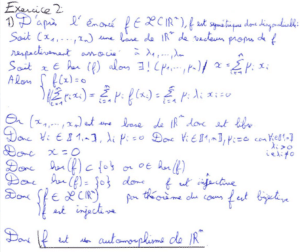 Exercice 2
1) D'après l'énoncé f ∈ L(ℝⁿ), f est symétrique donc diagonalisable
Soit (x₁, ..., xₙ) une base de ℝⁿ de vecteurs propres de f
respectivement associé à λ₁, ..., λₙ
Soit x ∈ ker(f) alors ∃! (μ₁, ..., μₙ) / x = Σ μᵢ xᵢ
Alors { f(x) = 0
f(Σ μᵢ xᵢ) = Σ μᵢ f(xᵢ) = Σ μᵢ λᵢ xᵢ = 0
Or (x₁, ..., xₙ) est une base de ℝⁿ donc est libre
Donc ∀i ∈ ⟦1, n⟧, λᵢ μᵢ = 0 Donc ∀i ∈ ⟦1, n⟧, μᵢ = 0 car ∀i ∈ ⟦1, n⟧
λᵢ > 0
λᵢ ≠ 0
Donc x = 0
Donc ker(f) ⊂ {0} or 0 ∈ ker(f)
Donc ker(f) = {0} donc f est injective
Donc { f ∈ L(ℝⁿ) par théorème du cours f est bijective
f est injective
Donc f est un automorphisme de ℝⁿ